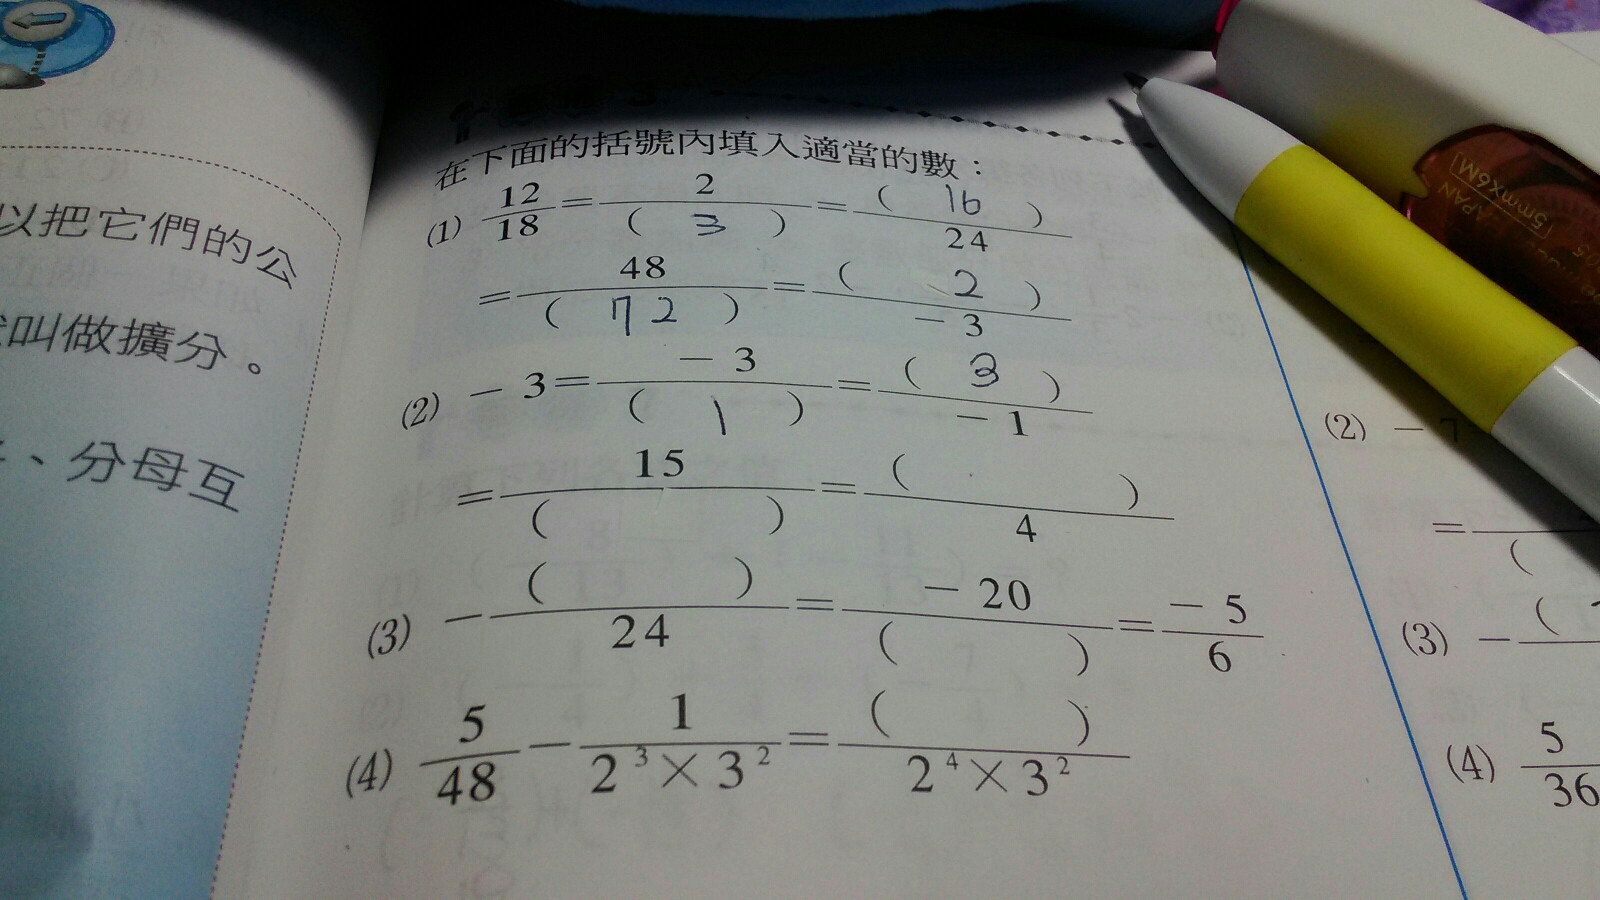 以把它們的公
叫做擴分。
、分母互
在下面的括號內填入適當的數：
(1) 12/18 = 2/( 3 ) = ( 16 )/24
= 48/( 72 ) = ( 2 )/-3
(2) -3 = -3/( 1 ) = ( 3 )/-1
= 15/(  ) = (  )/4
(3) -(  )/24 = -20/(  ) = -5/6
(4) 5/48 - 1/2³×3² = (  )/2⁴×3²
(2) -7
= (
(3) - (
(4) 5/36
JAPAN
5mmX6M